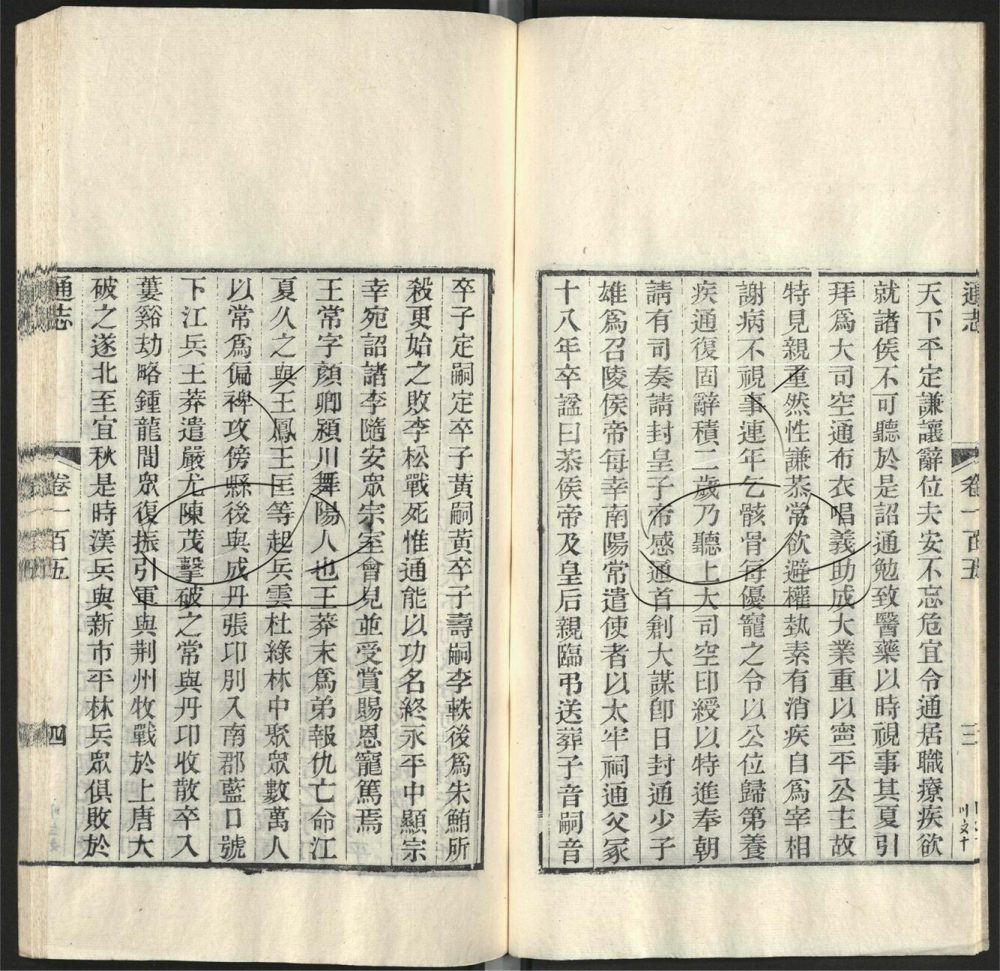 通志
卷一百五
三
天下平定謙讓辭位夫安不忘危宜令通居職療疾欲
就諸侯不可聽於是詔通勉致醫藥以時視事其夏引
拜爲大司空通布衣唱義助成大業重以寧平公主故
特見親重然性謙恭常欲避權埶素有消疾自爲宰相
謝病不視事連年乞骸骨每優寵之令以公位歸第養
疾通復固辭積二歲乃聽上大司空印綬以特進奉朝
請有司奏請封皇子帝感通首創大謀卽日封通少子
雄爲召陵侯帝每幸南陽常遣使者以太牢祠通父冢
十八年卒諡曰恭侯帝及皇后親臨弔送葬子音嗣音
卒子定嗣定卒子黃嗣黃卒子壽嗣李軼後爲朱鮪所
殺更始之敗李松戰死惟通能以功名終永平中顯宗
幸宛詔諸李隨安眾宗室會見並受賞賜恩寵篤焉
王常字顏卿潁川舞陽人也王莽末爲弟報仇亡命江
夏久之與王鳳王匡等起兵雲杜綠林中聚眾數萬人
以常爲偏裨攻傍縣後與成丹張卬別入南郡藍口號
下江兵王莽遣嚴尤陳茂擊破之常與丹卬收散卒入
蔞谿劫略鍾龍間眾復振引軍與荆州牧戰於上唐大
破之遂北至宜秋是時漢兵與新市平林兵眾俱敗於
通志
卷一百五
四